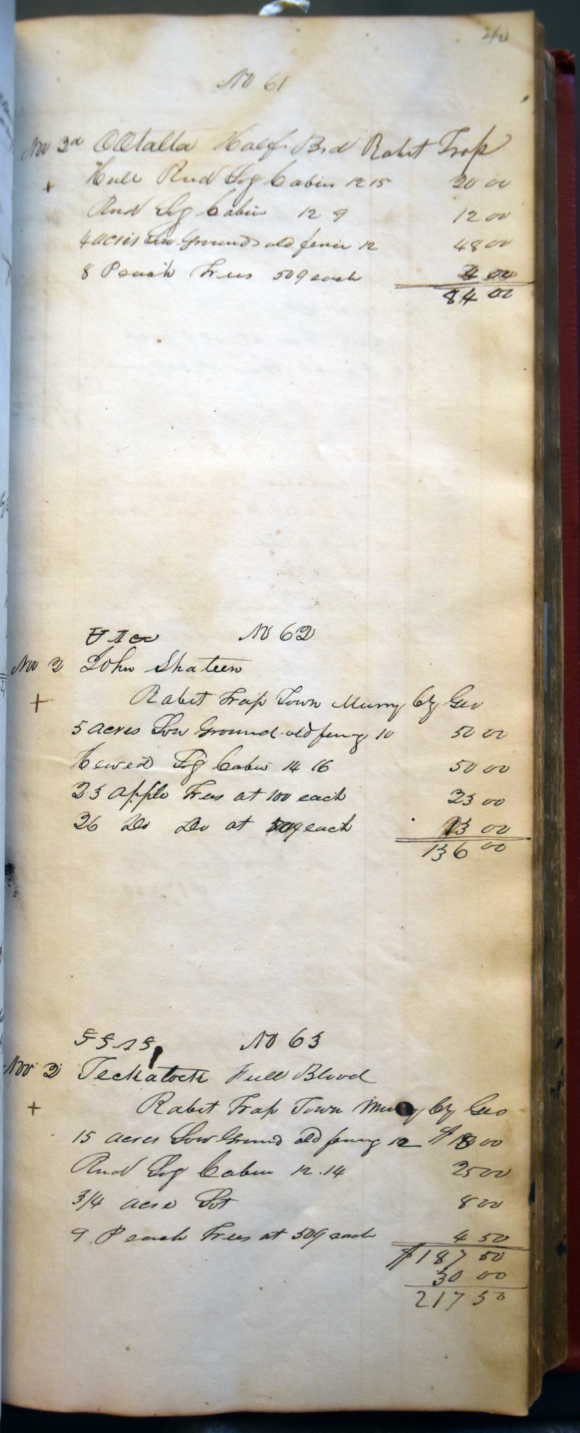 40
No 61
Nov 2d OOtalta Half Brd Rabit Trap
+ Hull Rnd Log Cabin 12 15 20 00
Rnd Log Cabin 12 9 12 00
4 acres Low Grounds old fence 12 48 00
8 Peach Trees 50¢ each 4 00
84 00
No 62
Nov 2 John Skateen
+ Rabit Trap Town Murry Cty Geo
5 acres Low Ground old feng 10 50 00
Hewed Log Cabin 14 16 50 00
23 apple Trees at 100 each 23 00
26 Do Do at 50¢ each 13 00
136 00
No 63
Nov 2 Teckatock Full Blood
+ Rabit Trap Town Murry Cty Geo
15 acres Low Ground old feng 12
Rnd Log Cabin 12.14 25 00
3/4 acre Lot 8 00
9 Peach Trees at 50¢ each 4 50
$187 50
30 00
217 50